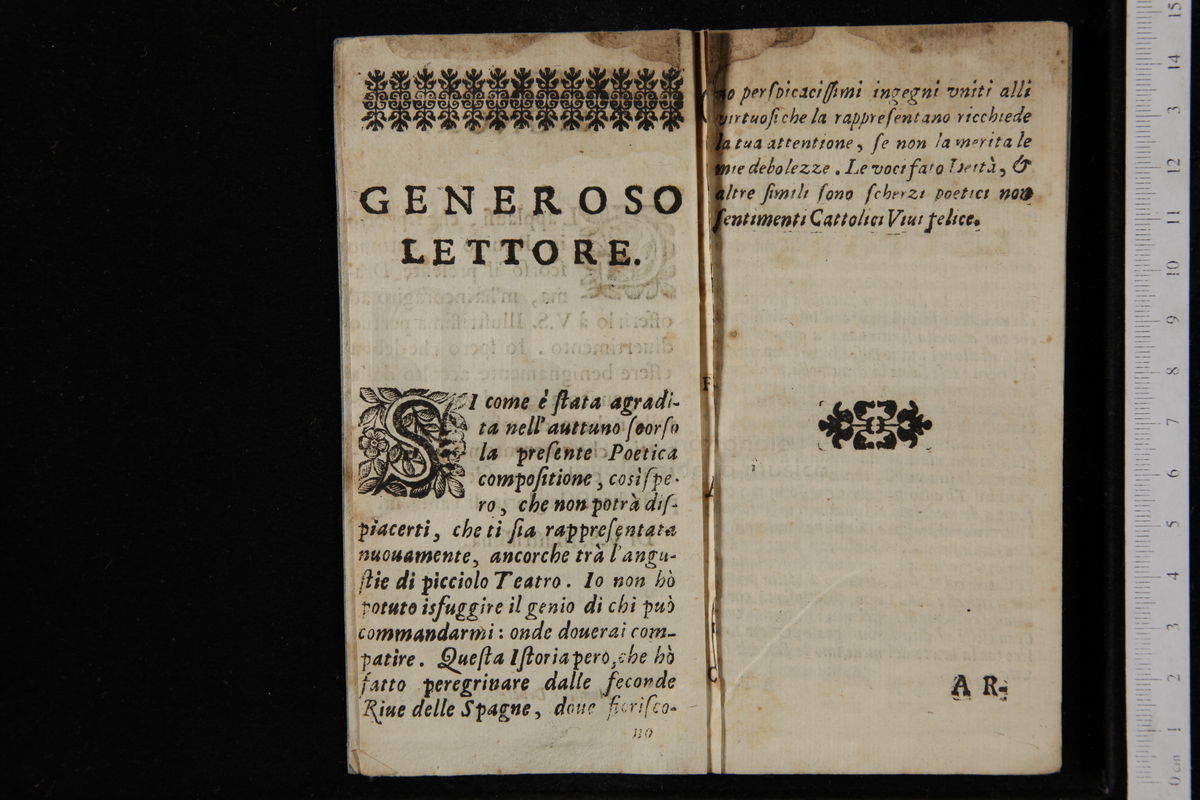 GENEROSO
LETTORE.
SI come è ſtata agradi-
ta nell'auttuno ſcorſo
la preſente Poetica
compoſitione, così ſpe-
ro, che non potrà diſ-
piacerti, che ti ſia rappreſentata
nuouamente, ancorche trà l'angu-
ſtie di picciolo Teatro. Io non hò
potuto isfuggire il genio di chi può
commandarmi: onde douerai com-
patire. Queſta Iſtoria però, che hò
fatto peregrinare dalle feconde
Riue delle Spagne, doue fioriſco-
no
no perſpicaciſſimi ingegni vniti alli
virtuoſi che la rappreſentano ricchiede
la tua attentione, ſe non la merita le
mie debolezze. Le voci fato Deità, &
altre ſimili ſono ſcherzi poetici non
ſentimenti Cattolici Viui felice.
AR-